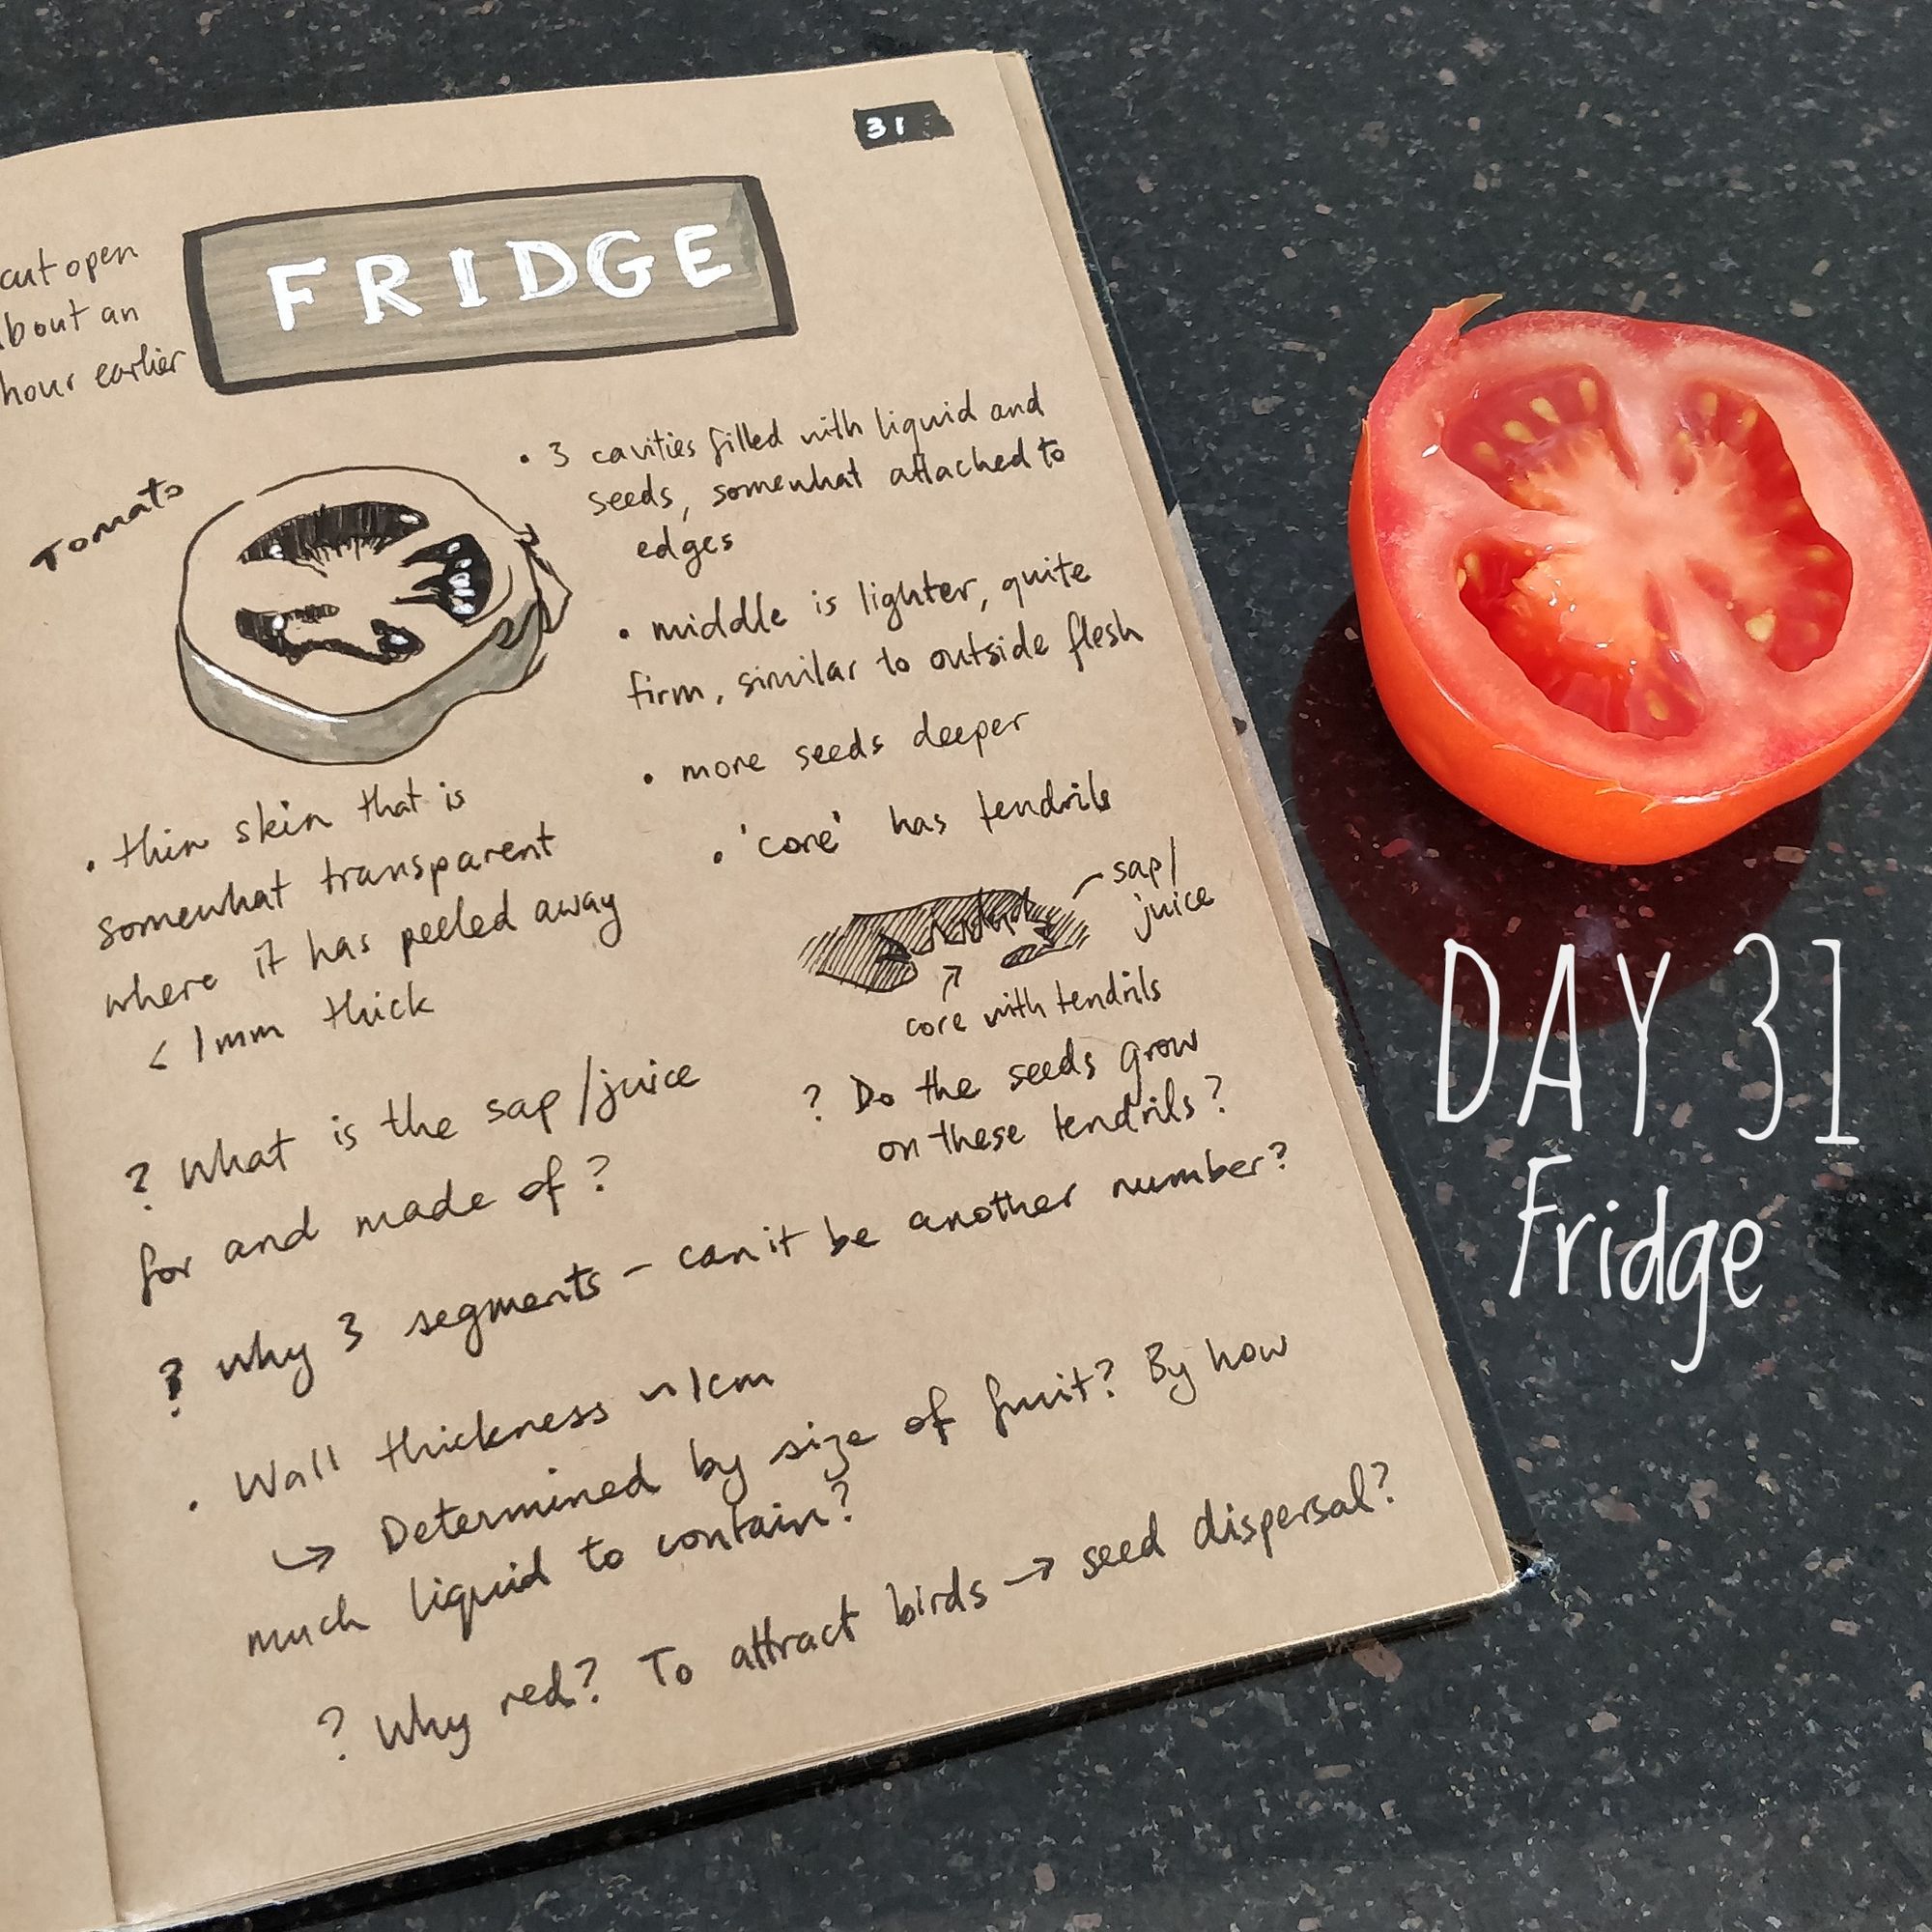 31
FRIDGE
cut open
about an
hour earlier
Tomato
• 3 cavities filled with liquid and
seeds, somewhat attached to
edges
• middle is lighter, quite
firm, similar to outside flesh
• more seeds deeper
• 'core' has tendrils
sap/
juice
core with tendrils
? Do the seeds grow
on these tendrils?
• thin skin that is
somewhat transparent
where it has peeled away
< 1mm thick
? What is the sap/juice
for and made of?
? Why 3 segments - can it be another number?
• Wall thickness ~1cm
↳ Determined by size of fruit? By how
much liquid to contain?
? Why red? To attract birds → seed dispersal?
DAY 31
Fridge